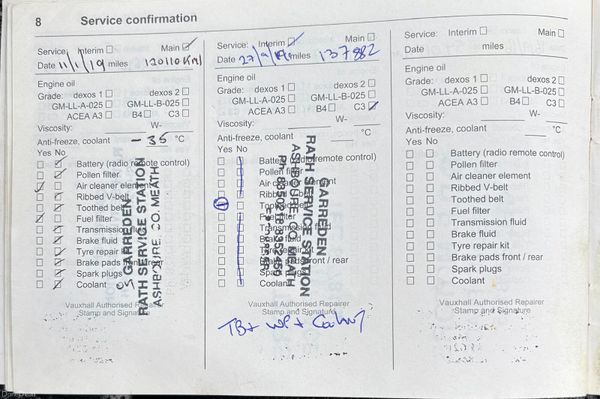 8 Service confirmation
Service: Interim Main
Date 11/1/19 miles 120110 KM
Engine oil
Grade: dexos 1 dexos 2
GM-LL-A-025 GM-LL-B-025
ACEA A3 B4 C3
Viscosity: W-
Anti-freeze, coolant -35 °C
Yes No
Battery (radio remote control)
Pollen filter
Air cleaner element
Ribbed V-belt
Toothed belt
Fuel filter
Transmission fluid
Brake fluid
Tyre repair kit
Brake pads front / rear
Spark plugs
Coolant
GARRDEN
RATH SERVICE STATION
ASHBOURE. CO. MEATH
Vauxhall Authorised Repairer
Stamp and Signature
Service: Interim Main
Date 27/9/19 miles 137882
Engine oil
Grade: dexos 1 dexos 2
GM-LL-A-025 GM-LL-B-025
ACEA A3 B4 C3
Viscosity: W-
Anti-freeze, coolant °C
Yes No
Battery (radio remote control)
Pollen filter
Air cleaner element
Ribbed V-belt
Toothed belt
Fuel filter
Transmission fluid
Brake fluid
Tyre repair kit
Brake pads front / rear
Spark plugs
Coolant
GARRDEN
RATH SERVICE STATION
ASHBOURE. CO. MEATH
Vauxhall Authorised Repairer
Stamp and Signature
TB + WP +
Service: Interim Main
Date miles
Engine oil
Grade: dexos 1 dexos 2
GM-LL-A-025 GM-LL-B-025
ACEA A3 B4 C3
Viscosity: W-
Anti-freeze, coolant °C
Yes No
Battery (radio remote control)
Pollen filter
Air cleaner element
Ribbed V-belt
Toothed belt
Fuel filter
Transmission fluid
Brake fluid
Tyre repair kit
Brake pads front / rear
Spark plugs
Coolant
Vauxhall Authorised Repairer
Stamp and Signature
DoneDeal